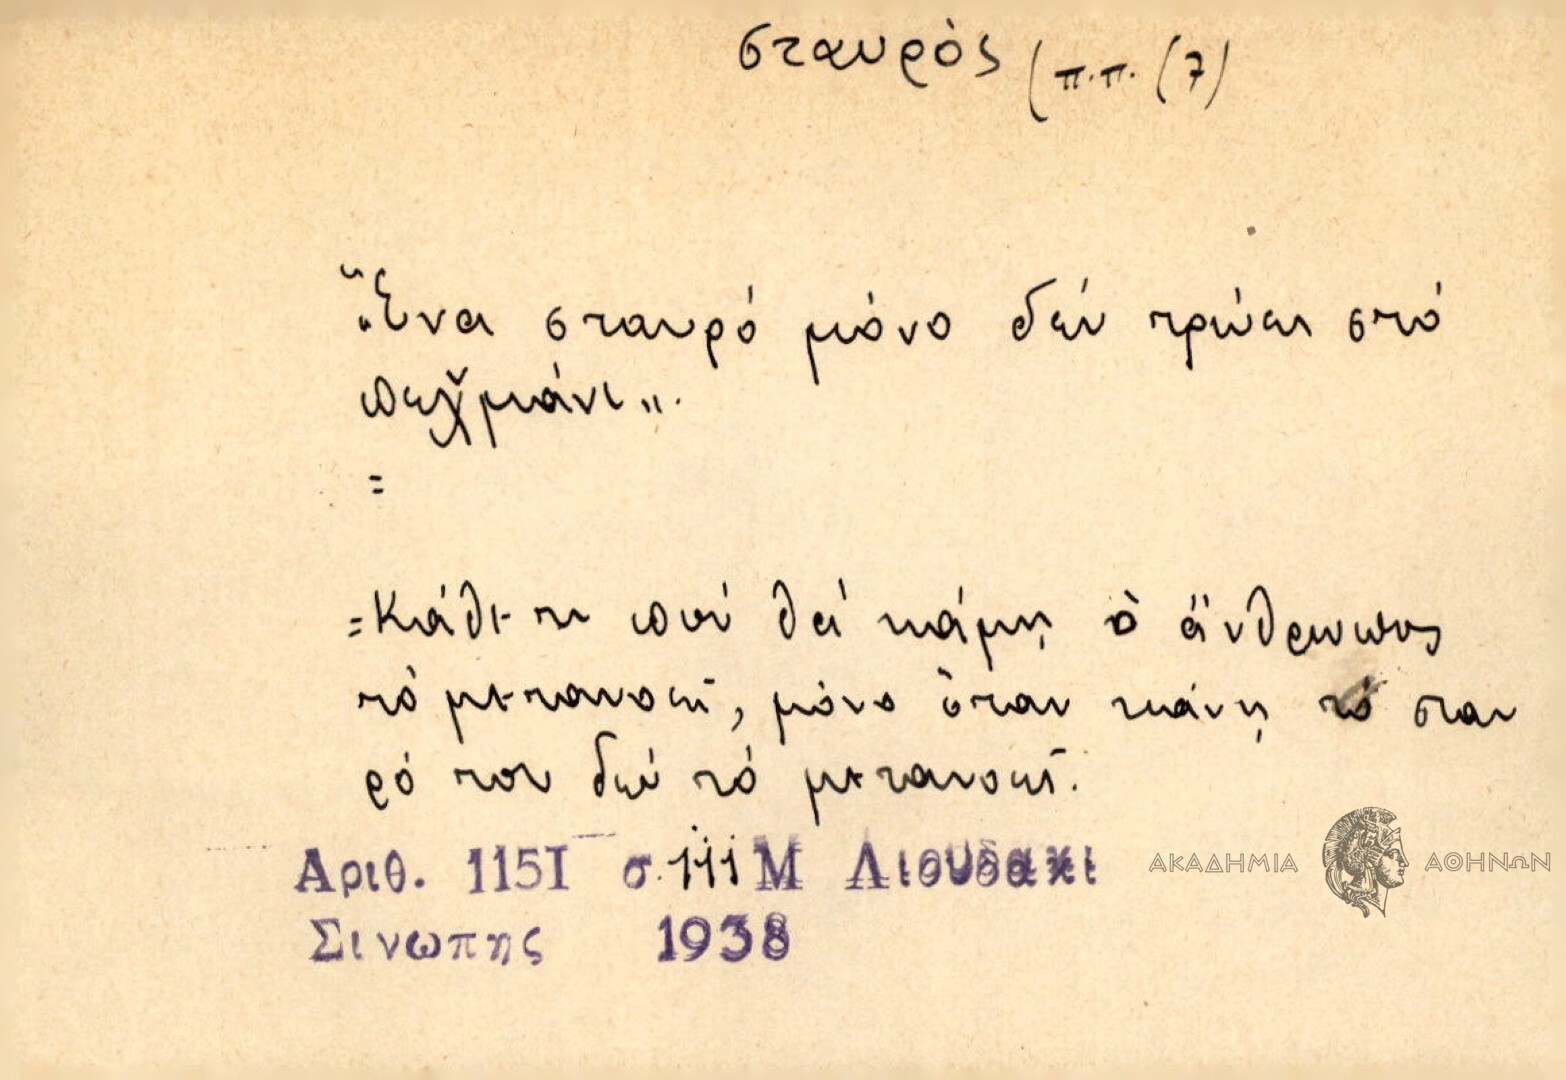 σταυρὸς (π.π. (7)
"Ἕνα σταυρό μόνο δέν τρώει στό
πεχ̌μιάνι".
=
=Κάθε τι πού θά κάμῃ ὁ ἄνθρωπος
τό μετανοεῖ, μόνο ὅταν κάνῃ τό σταυ
ρό του δέν τό μετανοεῖ.
Αριθ. 1151 σ. 111 Μ Λιουδακι
Σινωπης 1938
ΑΚΑΔΗΜΙΑ ΑΘΗΝΩΝ